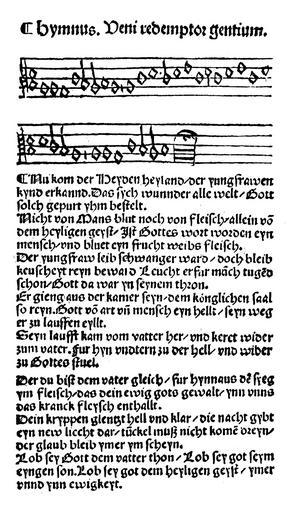 ¶ Hymnus. Veni redemptor gentium.
¶Nu kom der Heyden heyland/der yungfrawen
kynd erkannd. Das sych wunnder alle welt/Gott
solch gepurt yhm bestelt.
Nicht von Mans blut noch von fleisch/allein võ
dem heyligen geyst/Ist Gottes wort worden eyn
mensch/vnd bluet eyn frucht weibs fleisch.
Der yungfraw leib schwanger ward/doch bleib
keuscheyt reyn beward Leucht erfur mãch tugẽd
schon/Gott da war yn seynem thron.
Er gieng aus der kamer seyn/dem könglichen saal
so reyn. Gott võ art vñ mensch eyn hellt/seyn weg
er zu lauffen eyllt.
Seyn laufft kam vom vatter her/vnd keret wider
zum vater. Fur hyn vndtern zu der hell/vnd wider
zu Gottes stuel.
Der du bist dem vater gleich/fur hynnaus dẽ syeg
ym fleisch/das dein ewig gots gewalt/ynn vnns
das kranck fleysch enthallt.
Dein kryppen glentzt hell vnd klar/die nacht gybt
eyn new liecht dar/tückel muß nicht komẽ dreyn/
der glaub bleib ymer ym scheyn.
Lob sey Gott dem vatter thon/Lob sey got seym
eyngen son. Lob sey got dem heyligen geyst/ymer
vnnd ynn ewigkeyt.